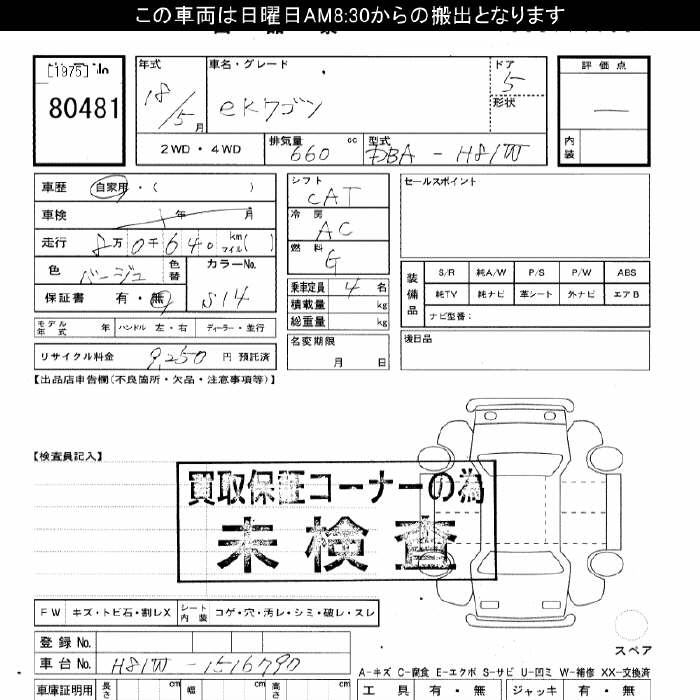 この車両は日曜日AM8:30からの搬出となります
[1975] No
80481
年式
18/5月
車名・グレード
eKワゴン
ドア
5
形状
評価点
内装
2WD・4WD
排気量
660 cc
型式
DBA - H81W
車歴 自家用・( )
車検 年 月
走行 8万0千640 km マイル( )
色 ベージュ 色替
カラーNo.
S14
保証書 有・無
モデル年式 年 ハンドル 左・右 ディーラー・並行
リサイクル料金 9,250 円 預託済
シフト
CAT
冷房
AC
燃料
G
乗車定員 4 名
積載量 kg
総重量 kg
名変期限
月 日
セールスポイント
装備品
S/R 純A/W P/S P/W ABS
純TV 純ナビ 革シート 外ナビ エアB
ナビ型番:
後日品
【出品店申告欄(不良箇所・欠品・注意事項等)】
【検査員記入】
買取保証コーナーの為
未検査
FW キズ・トビ石・割レX シート内装 コゲ・穴・汚レ・シミ・破レ・スレ
スペア
登録No.
車台No. H81W-1516790
A-キズ C-腐食 E-エクボ S-サビ U-凹ミ W-補修 XX-交換済
車庫証明用 長さ cm 幅 cm 高さ cm
工具 有・無 ジャッキ 有・無